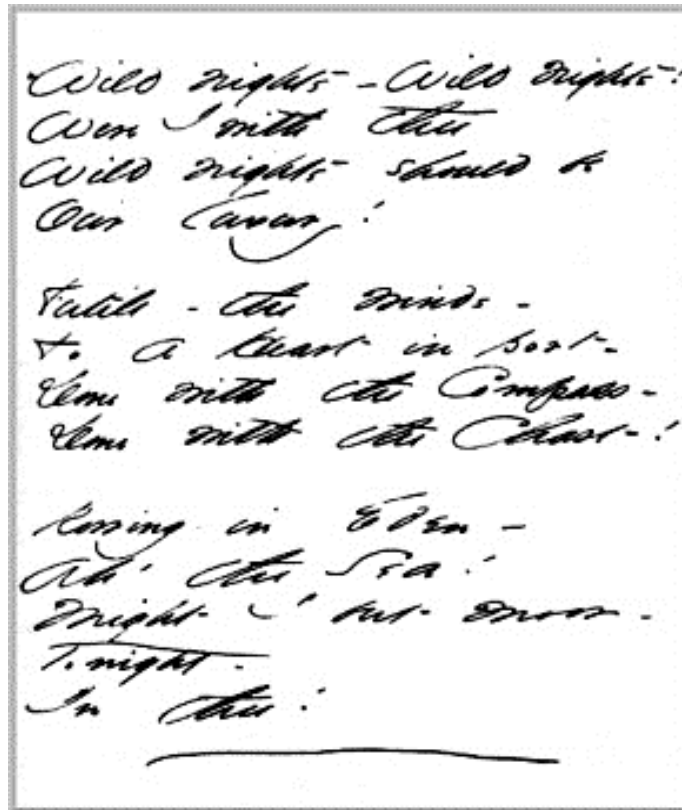 Wild nights - Wild nights!
Were I with thee
Wild nights should be
Our luxury!
Futile - the winds -
To a Heart in port -
Done with the Compass -
Done with the Chart - !
Rowing in Eden -
Ah! the Sea!
Might I but moor -
Tonight -
In thee!